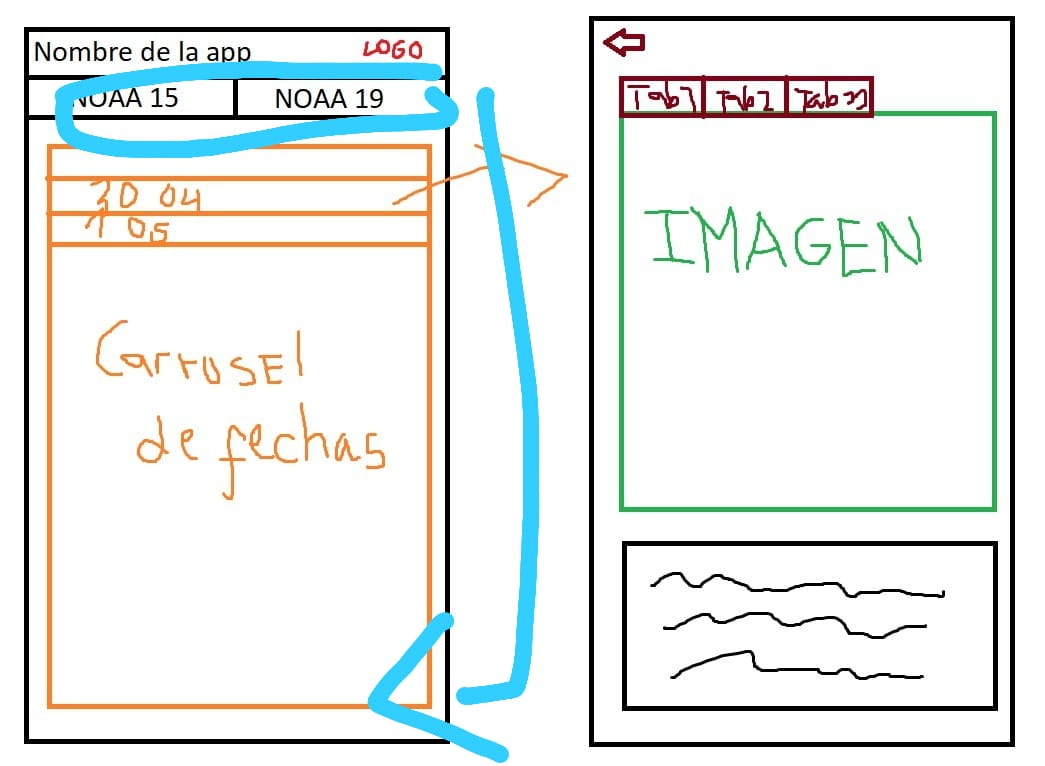 Nombre de la app LOGO
NOAA 15 NOAA 19
30 04
1 05
Carrusel
de fechas
Tab1 Tab2 Tab n
IMAGEN